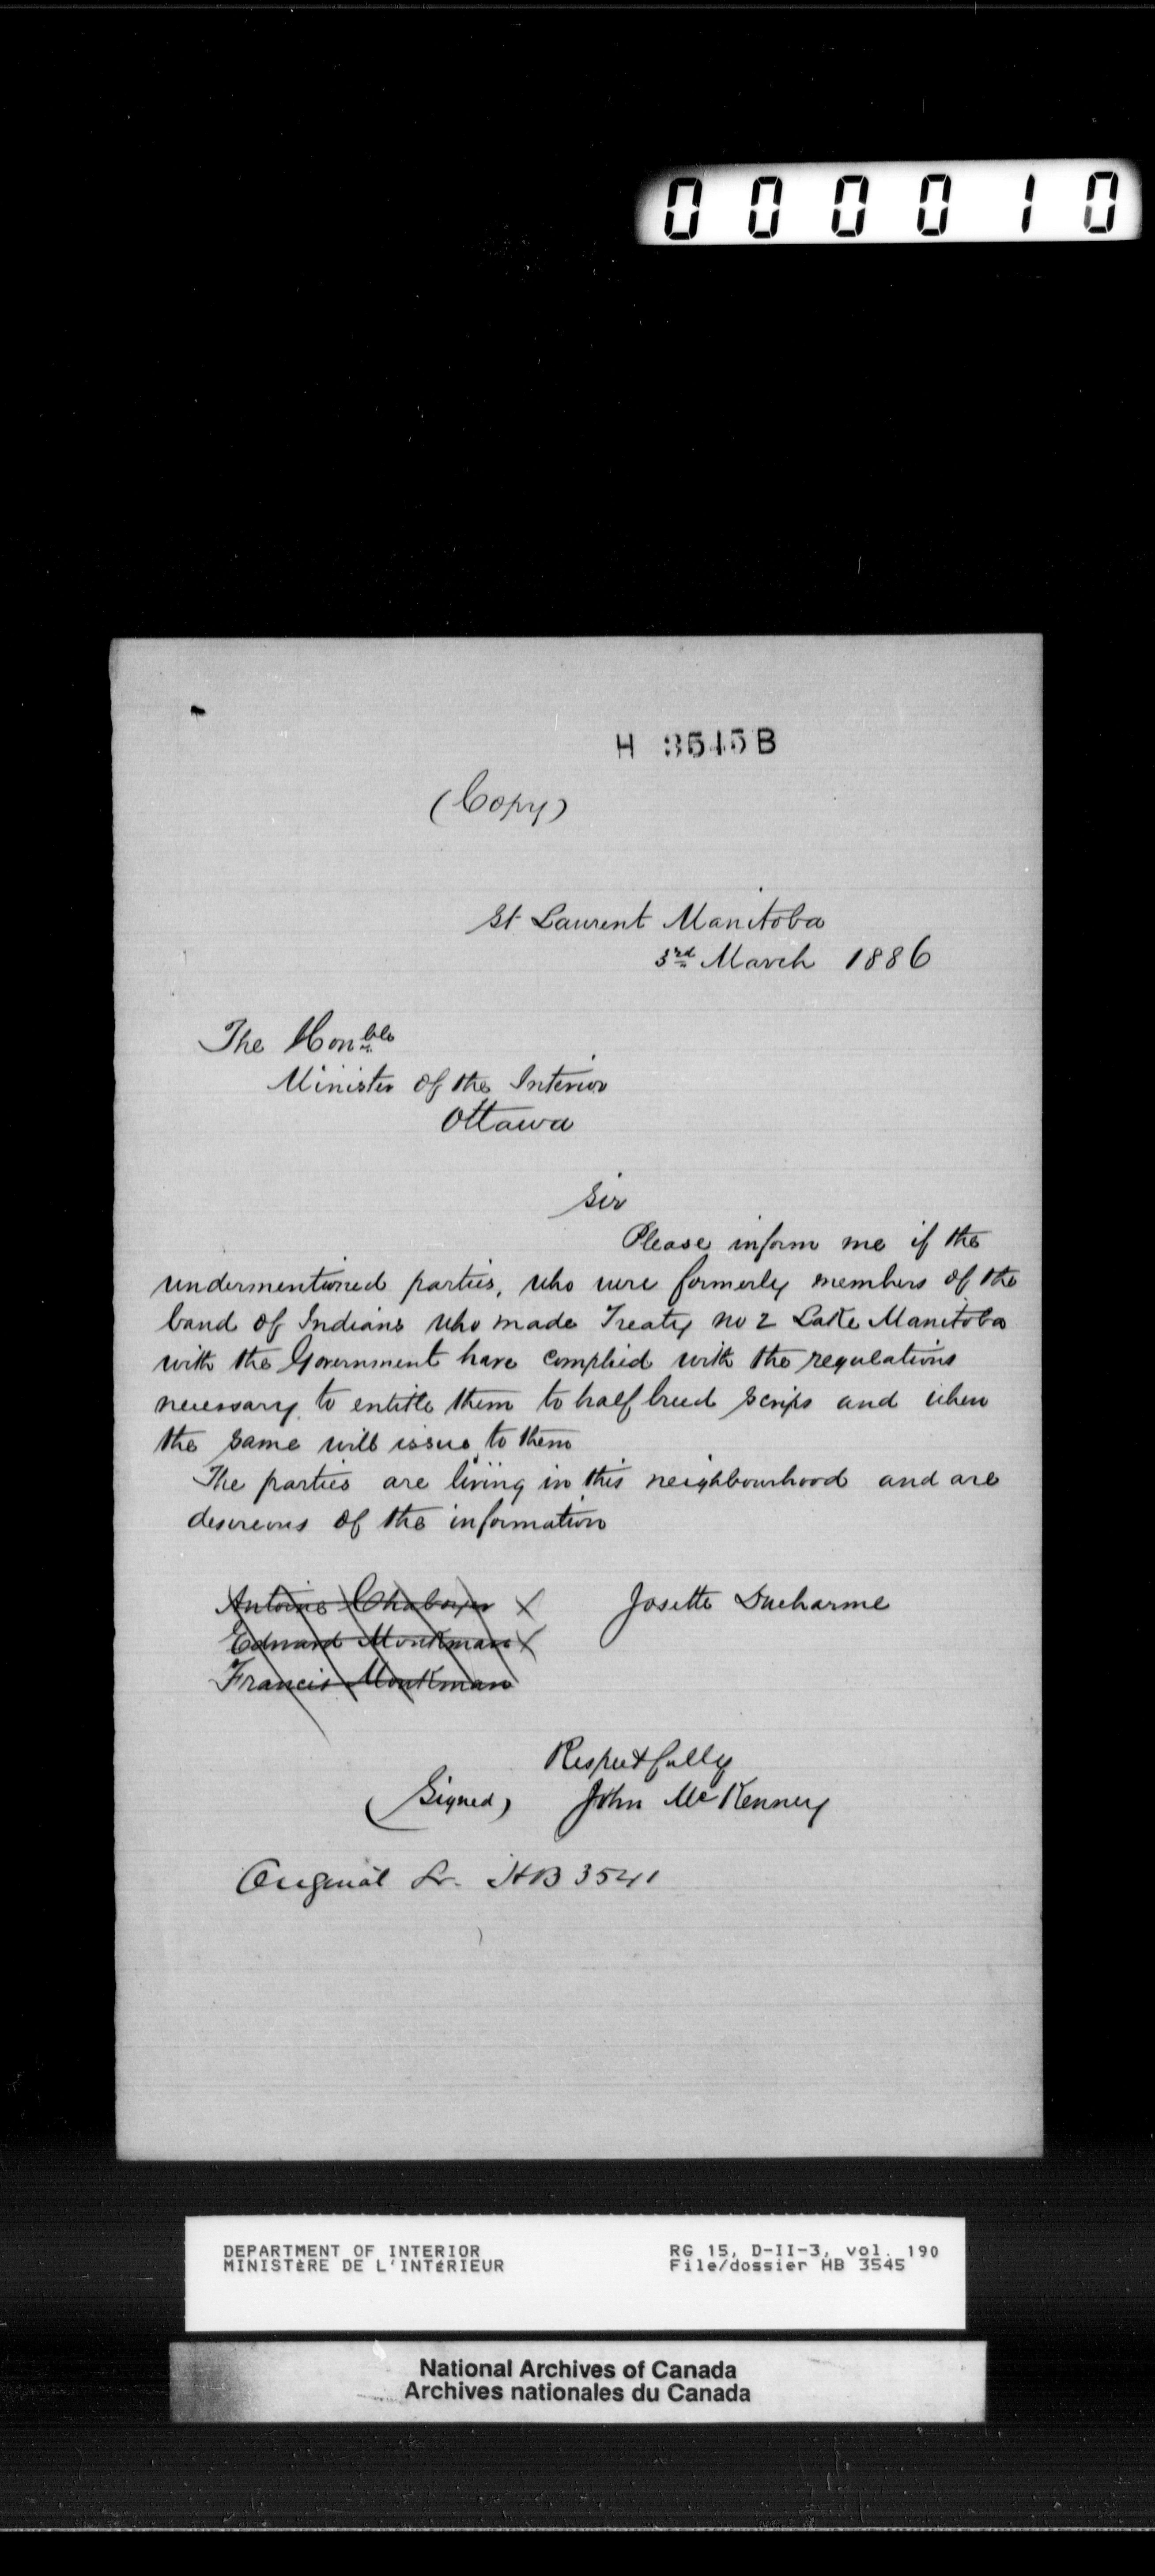 000010
H 3545 B
(Copy)
St Laurent Manitoba
3rd March 1886
The Honble
Minister of the Interior
Ottawa
Sir
Please inform me if the
undermentioned parties, who were formerly members of the
band of Indians who made Treaty no 2 Lake Manitoba
with the Government have complied with the regulations
necessary to entitle them to half breed scrips and when
the same will issue to them
The parties are living in this neighbourhood and are
desireous of the information
Antoine Chaboyer x Josette Ducharme
Edward Monkman x
Francis Monkman
Respectfully
(Signed) John McKenney
Original Lr. HB 3541
DEPARTMENT OF INTERIOR RG 15, D-II-3, vol. 190
MINISTÈRE DE L'INTÉRIEUR File/dossier HB 3545
National Archives of Canada
Archives nationales du Canada